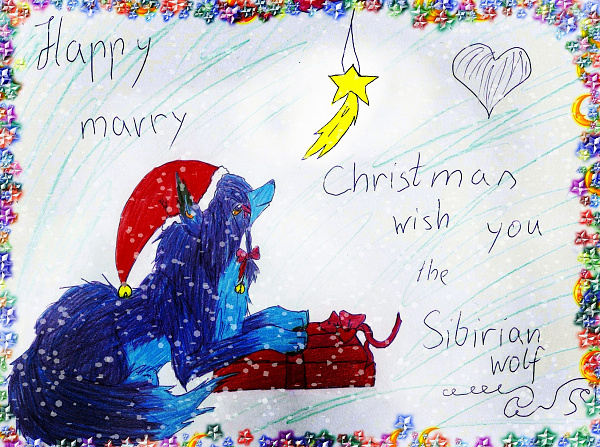 Happy
marry
Christmas
wish you
the
Sibirian
wolf